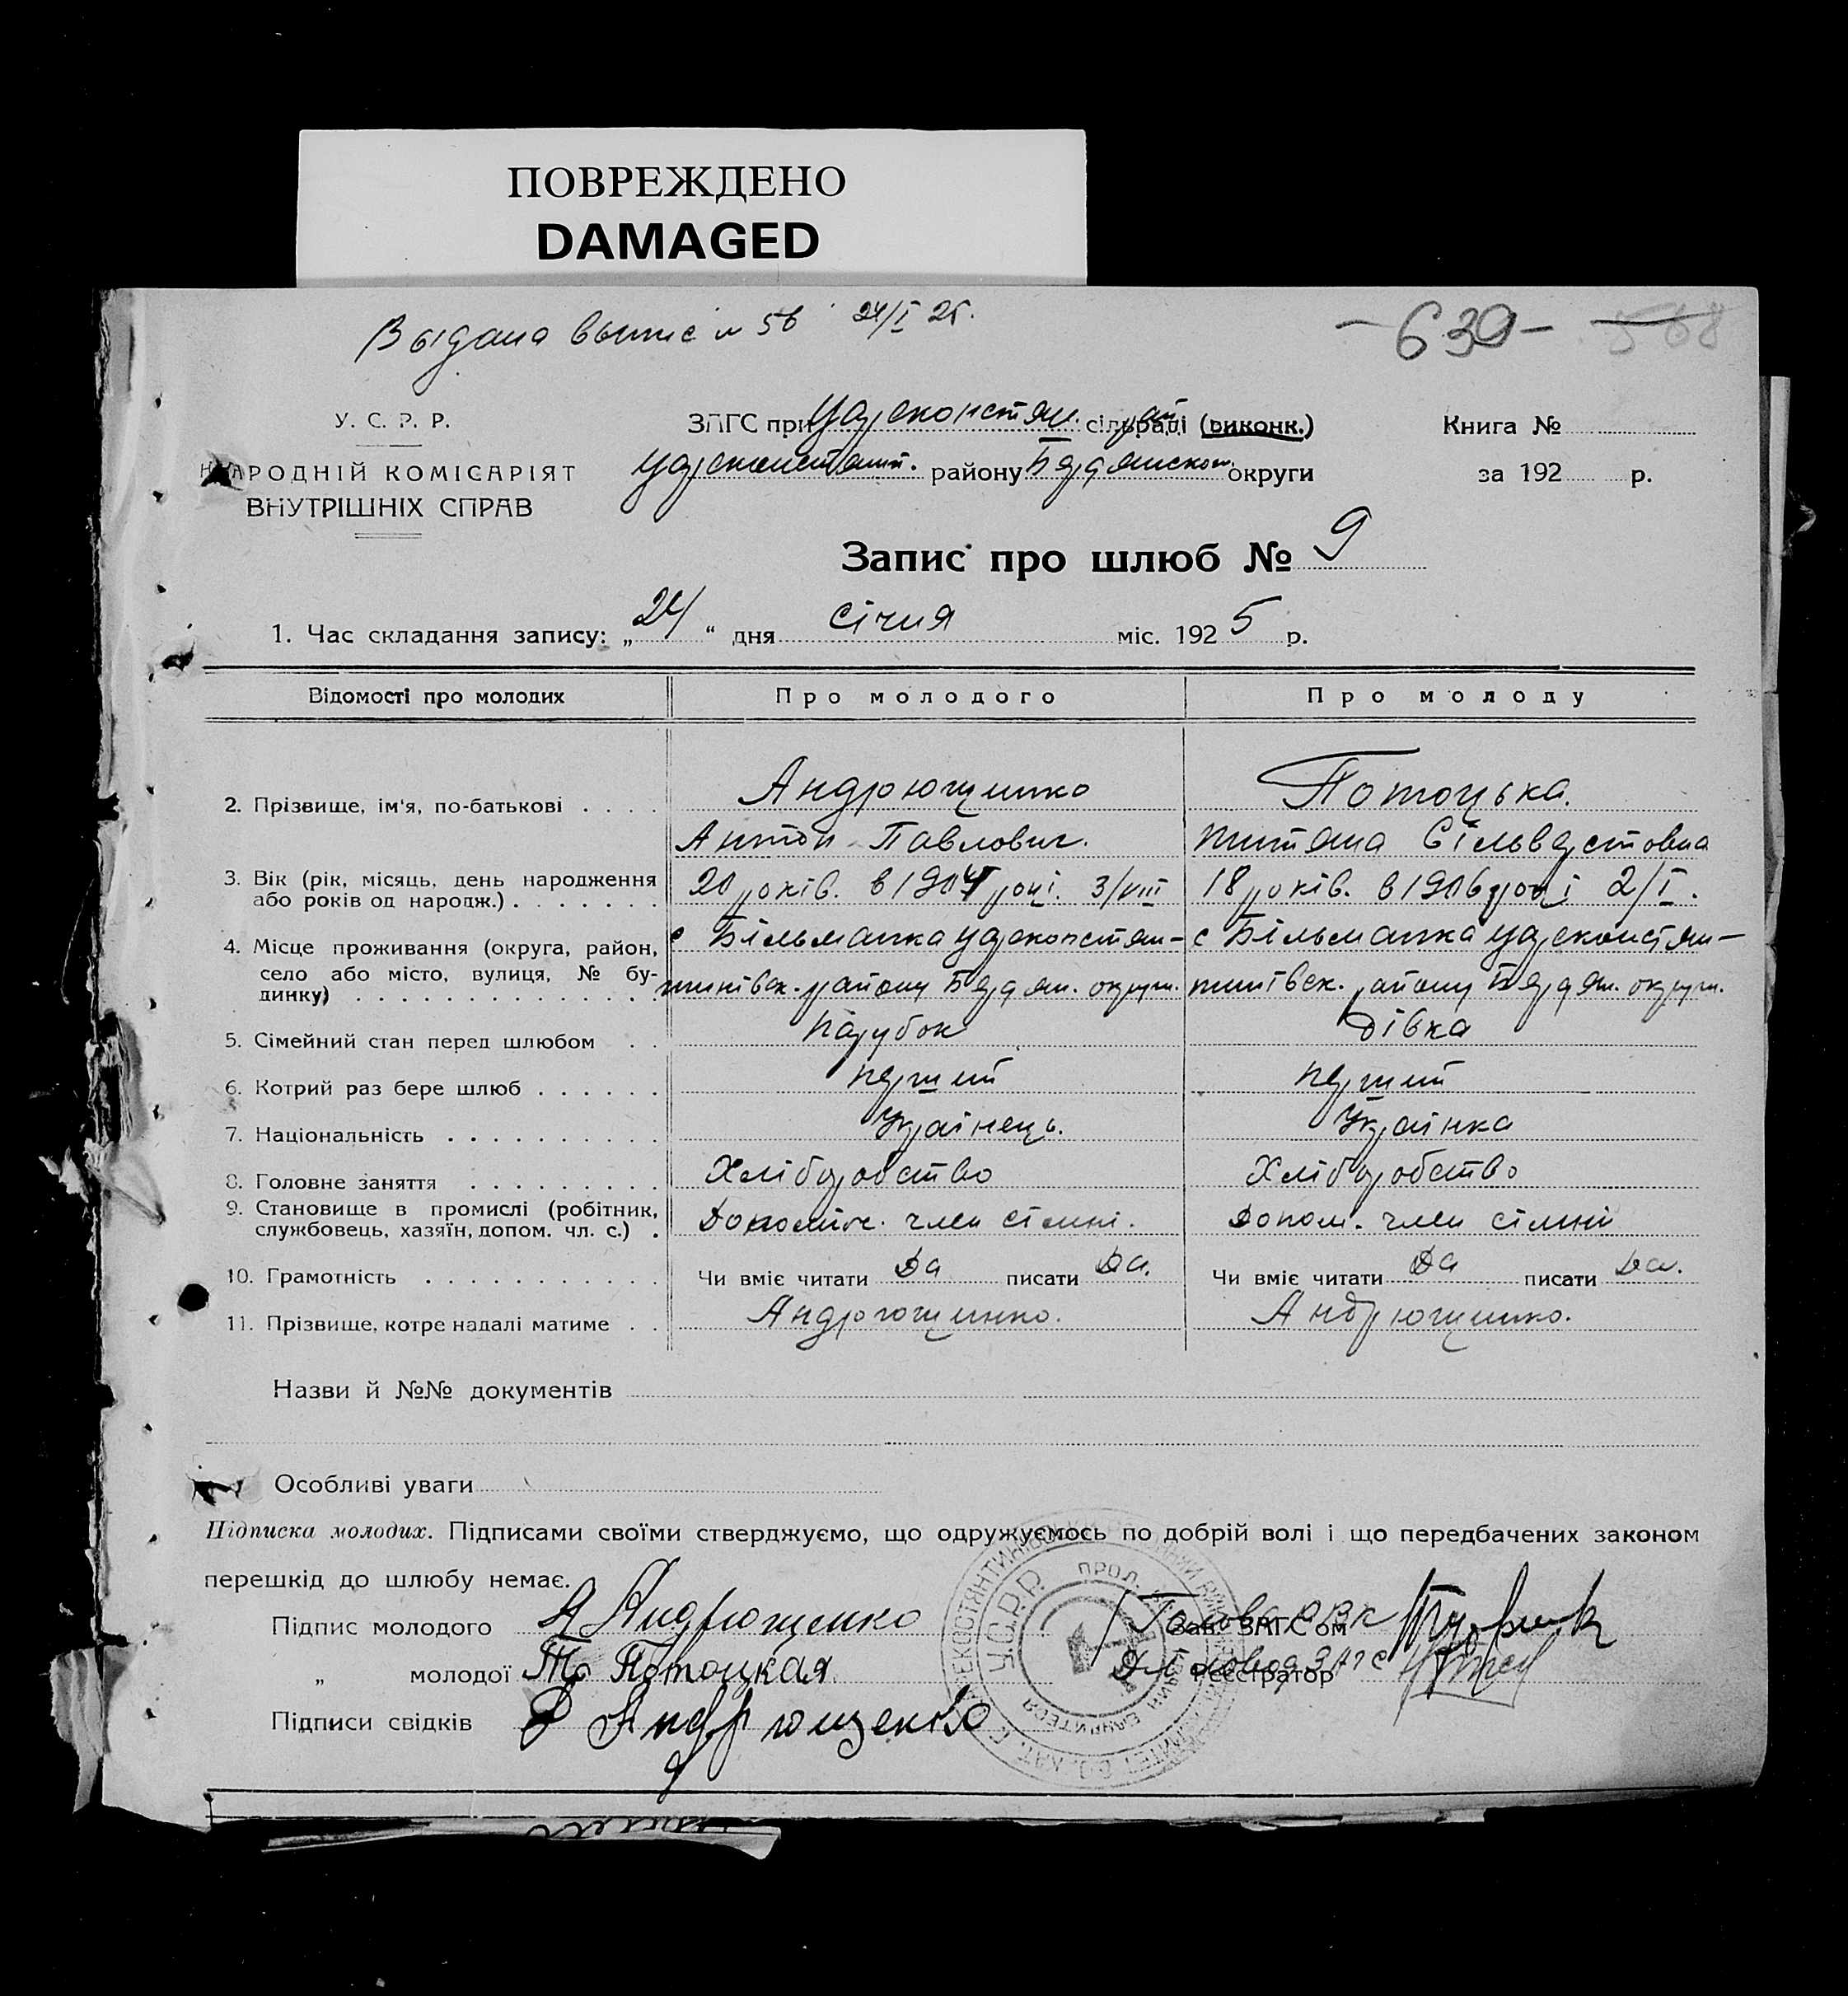 ПОВРЕЖДЕНО
DAMAGED
Выдана выпис № 56 24/I 25.
-639- 568
У. С. Р. Р.
НАРОДНІЙ КОМІСАРІЯТ
ВНУТРІШНІХ СПРАВ
ЗАГС при Царєконстян. сільраді (виконк.)
Царєконстянт. району Бердянськой округи
Книга №
за 192 р.
Запис про шлюб № 9
1. Час складання запису: „24“ дня Січня міс. 1925 р.
Відомості про молодих Про молодого Про молоду
2. Прізвище, ім'я, по-батькові . . . . Андрющенко Потоцька.
Антон Павлович. Титяна Сільвестовна
3. Вік (рік, місяць, день народження 20 років. в 1904 році. 3/VIII 18 років. в 1906 році 2/I.
або років од народж.) . . . . . . .
4. Місце проживання (округа, район, с Більманка Царєконстян- с Більманка Царєконстян-
село або місто, вулиця, № бу- тинівск. району Бердян. округи. тинівск. району Бердян. округи.
динку) . . . . . . . . . . . . . .
5. Сімейний стан перед шлюбом . . Парубок Дівка
6. Котрий раз бере шлюб . . . . . . перший перший
7. Національність . . . . . . . . . . Українець. Українка
8. Головне заняття . . . . . . . . . Хліборобство Хліборобство
9. Становище в промислі (робітник, Допоміж. член сімні. Допом. член сімні
службовець, хазяїн, допом. чл. с.) .
10. Грамотність . . . . . . . . . . . Чи вміє читати Да писати Да. Чи вміє читати Да писати Да.
11. Прізвище, котре надалі матиме . . Андрющенко. Андрющенко.
Назви й №№ документів
Особливі уваги
Підписка молодих. Підписами своїми стверджуємо, що одружуємось по добрій волі і що передбачених законом
перешкід до шлюбу немає.
Підпис молодого А Андрющенко Зав. ЗАГС'ом
„ молодої Т Потоцкая Реєстратор
Підписи свідків Андрющенко
У.С.Р.Р.